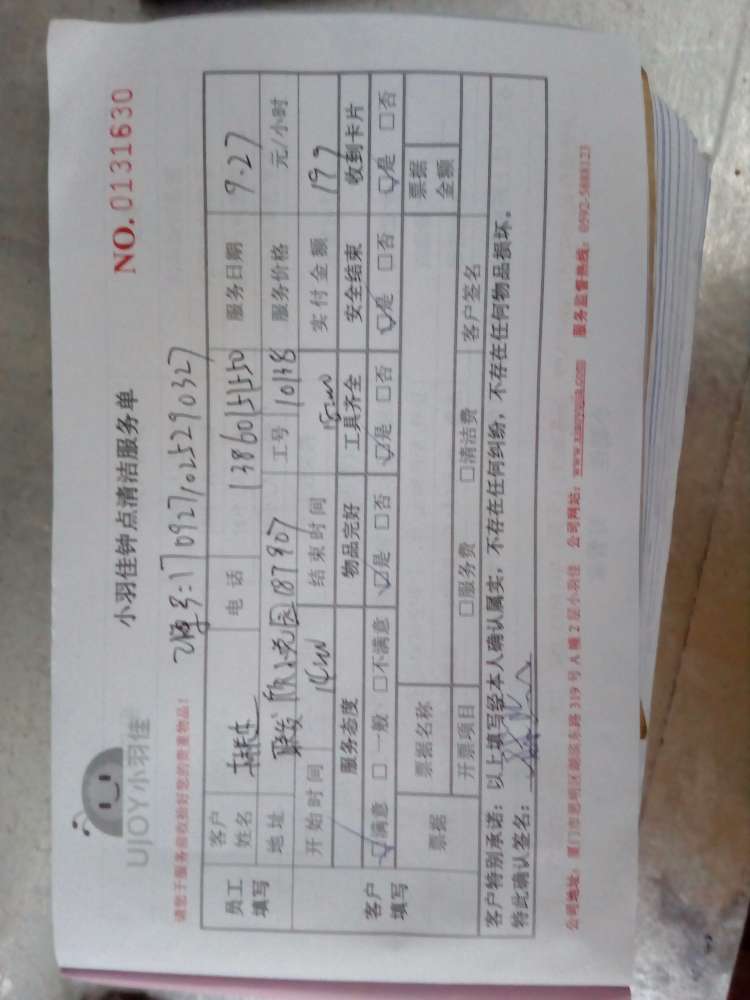 UJOY小羽佳
小羽佳钟点清洁服务单
NO.0131630
请您于服务前收拾好您的贵重物品!
订单号:1709271025290327
员工填写 客户姓名 电话 13860151550 服务日期 9.27
地址 联发欣悦园 187907 工号 10138 服务价格 元/小时
开始时间 14:00 结束时间 18:00 实付金额 199
客户填写 服务态度 物品完好 工具齐全 安全结束 收到卡片
☑满意 □一般 □不满意 ☑是 □否 ☑是 □否 ☑是 □否 ☑是 □否
票据 票据名称 票据金额
开票项目 □服务费 □清洁费 客户签名
客户特别承诺:以上填写经本人确认属实,不存在任何纠纷,不存在任何物品损坏。
特此确认签名:
公司地址:厦门市思明区湖滨东路319号A幢2层小羽佳 公司网站:www.xiaoyujia.com 服务监督热线:0592-5888123